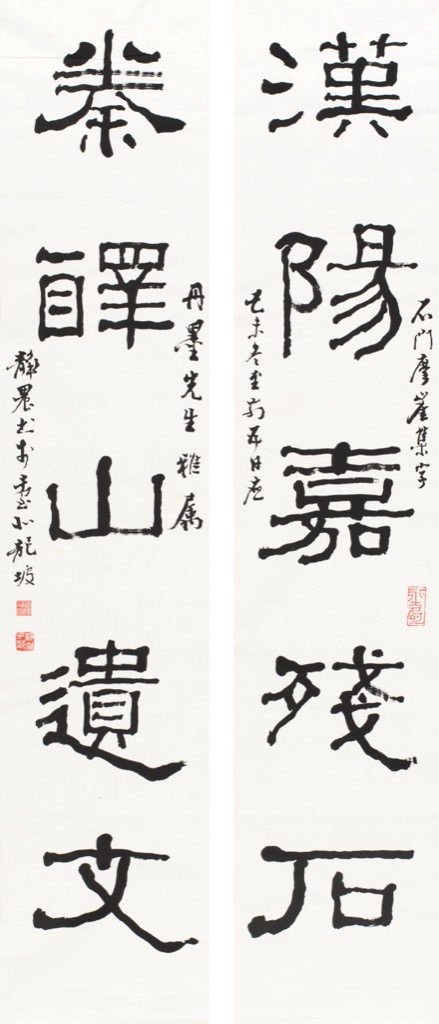 石門摩崖集字
漢陽嘉殘石
己未冬至前五日應
丹墨先生雅屬
秦嶧山遺文
靜農書於臺北龍坡